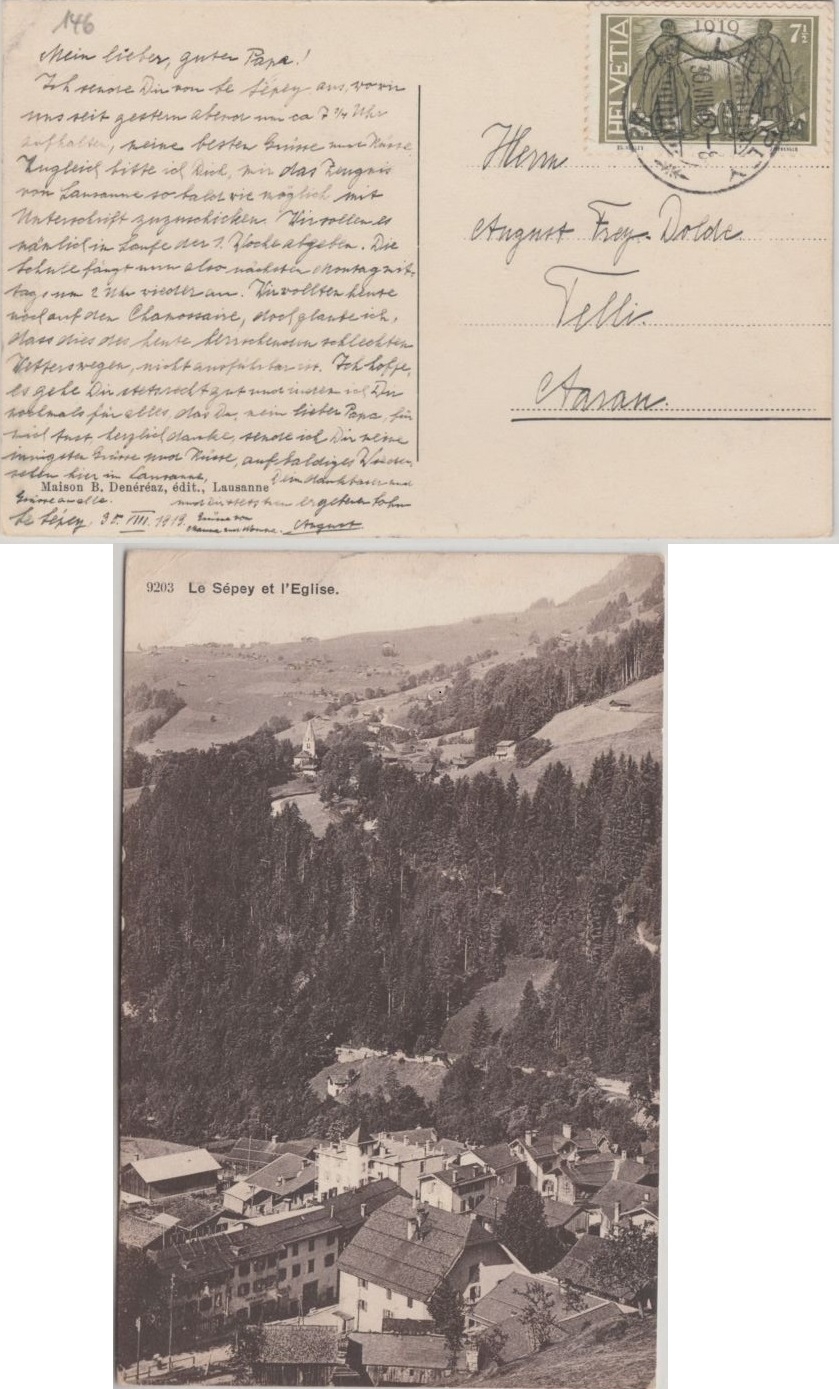 146
Mein lieber, guter Papa!
Ich sende Dir von Le Sépey aus, wo wir
uns seit gestern abend um ca 7 ¼ Uhr
aufhalten, meine besten Grüsse und Küsse.
Zugleich bitte ich Dich, mir das Zeugnis
von Lausanne so bald wie möglich mit
Unterschrift zuzuschicken. Wir sollen es
nämlich im Laufe der 1. Woche abgeben. Die
Schule fängt nun also nächsten Montag mit-
tags um 2 Uhr wieder an. Wir wollten heute
noch auf den Chamossaire, doch glaube ich,
dass dies des heute herrschenden schlechten
Wetters wegen, nicht ausführbar ist. Ich hoffe,
es gehe Dir stets recht gut und indem ich Dir
nochmals für alles, das Du, mein lieber Papa, für
mich tust, herzlich danke, sende ich Dir meine
innigsten Grüsse und Küsse, auf baldiges Wieder-
sehen hier in Lausanne,
Dein dankbarer und
Maison B. Denéréaz, édit., Lausanne
Grüsse an alle.
ergebener Sohn
Le Sépey, 30. VIII. 1919.
Grüsse von
August
HELVETIA
1919
7½
30.VIII.19
Herrn
August Frey-Dolde
Telli.
Aarau.
9203 Le Sépey et l'Eglise.